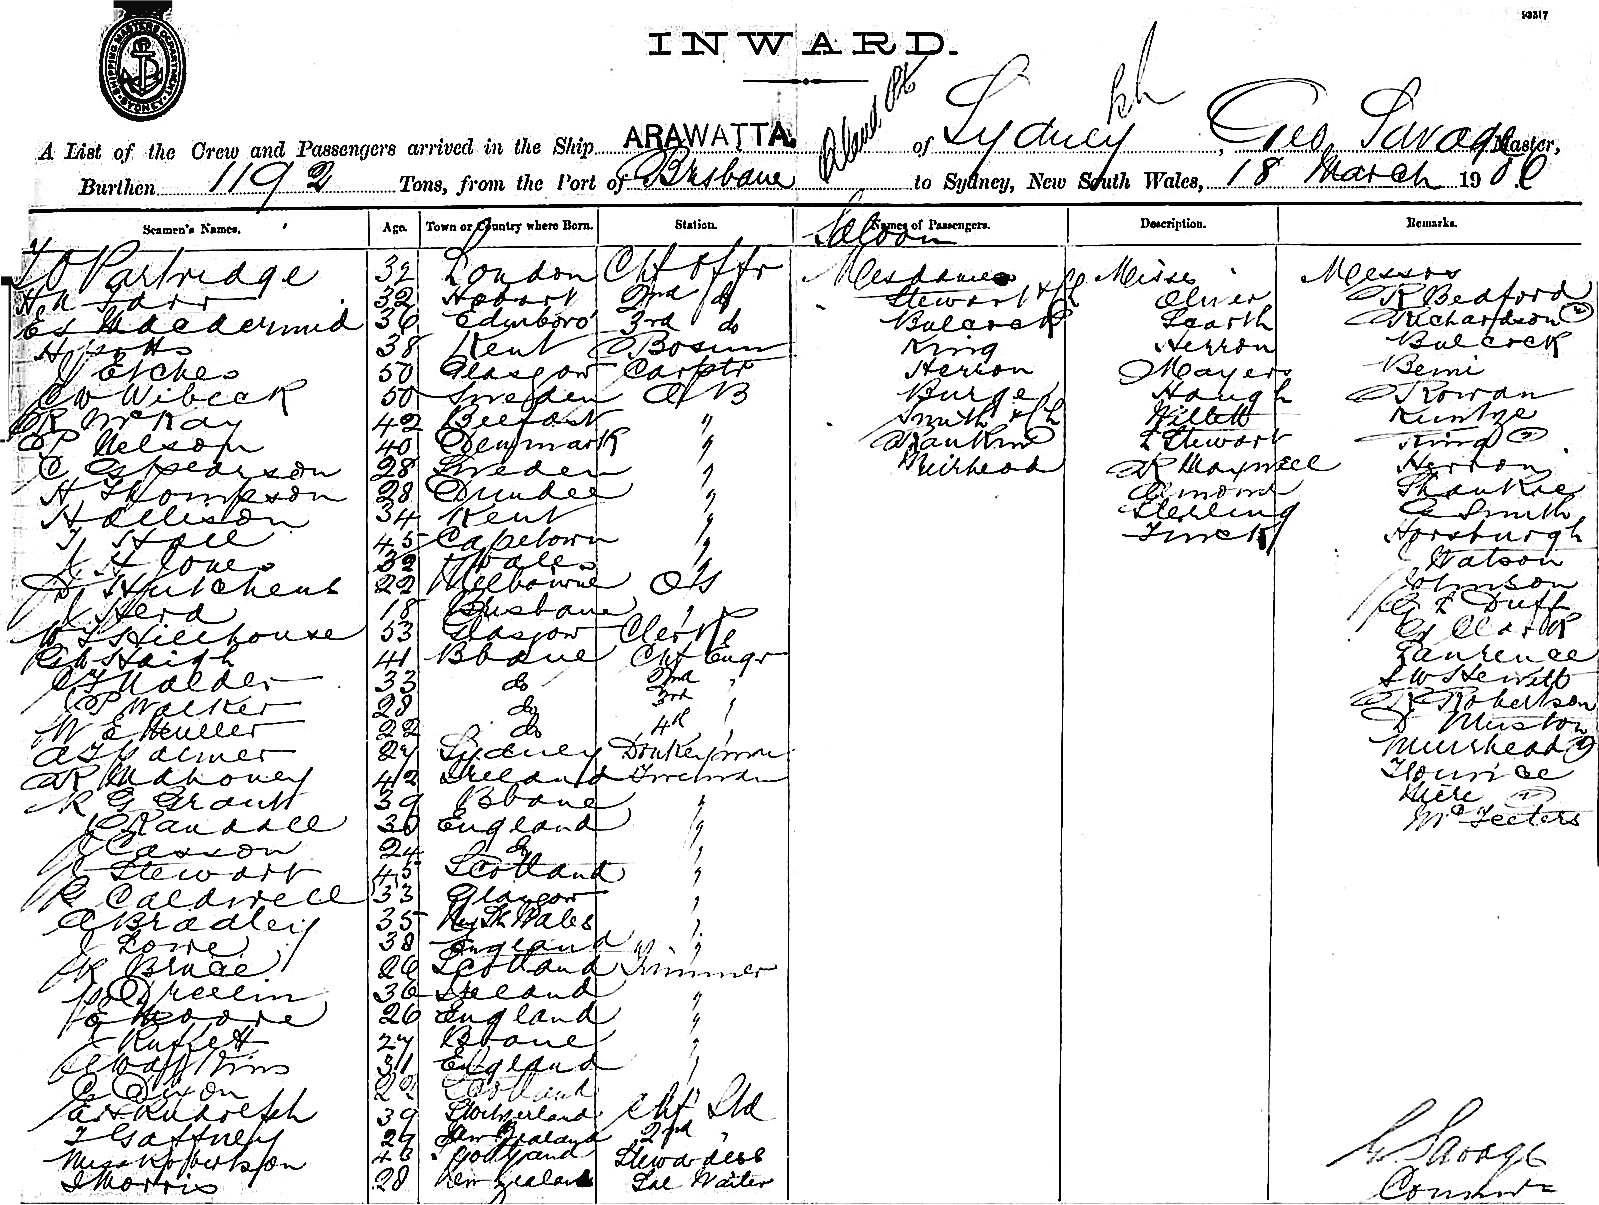 93317
SHIPPING MASTERS DEPARTMENT SYDNEY
INWARD.
A List of the Crew and Passengers arrived in the Ship ARAWATTA. of Sydney, Geo Savage Master,
Burthen 1192 Tons, from the Port of Brisbane to Sydney, New South Wales, 18 March 190
Seamen's Names. Age. Town or Country where Born. Station. Names of Passengers. Description. Remarks.
Saloon
Partridge 32 London Chf Offr Mesdames Misses Messrs
32 Hobart 2nd do Stewart & Ch Oliver R Bedford
Macdermid 36 Edinboro' 3rd do Bulcock Scarth Richardson
H Potts 38 Kent Bosun King Herron Bulcock
J Etches 50 Glasgow Carptr Herron Mayers Bemi
C W Wibeck 50 Sweden AB Burge Haugh Rowan
R McKay 42 Belfast " Smith & Ch Willett Kuntze
P Nelson 40 Denmark " Rankine Stewart King
C Gspearson 28 Sweden " Muirhead R Maxwell Herron
H Thompson 28 Dundee " Almond Shankie
H Allison 34 Kent " Sterling Smith
Hall 45 Capetown " Horsburgh
H Jones 32 Wales " J Watson
Hutchens 22 Melbourne OS Johnson
J Herd 18 Brisbane " Duff
Hillhouse 53 Glasgow Clerke Clark
Haigh 41 Bbane Chf Engr Laurence
Malder 33 do 2nd " S W Hewitt
P Walker 28 do 3rd " R Robertson
W E Huller 22 do 4th " D Muston
Palmer 27 Sydney Donkeyman Muirhead
R Mahoney 42 Ireland Fireman
R G Grant 39 Bbane "
Randall 30 England " McFeeters
J Casson 24 do "
J Stewart 45 Scotland "
R Caldwell 33 Glasgow "
A Bradley 35 New Sth Wales "
J Lowe 38 England "
R Bruce 26 Scotland Trimmer
36 Ireland "
E Moore 26 England "
J Ruffett 27 Bbane "
Watkins 31 England "
C Dixon 22 Scotland
Rudolph 39 Switzerland Chf Std
T Gaffney 29 New Zealand 2nd "
Miss Robertson 43 Scotland Stewardess
J Morris 28 New Zealand Sal Waiter
G Savage
Commdr